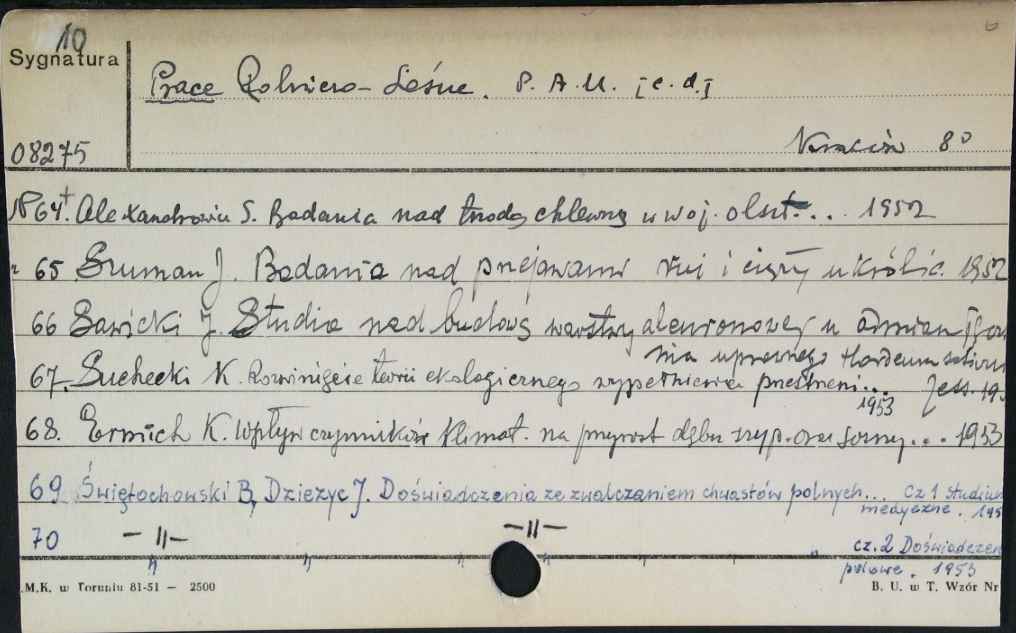 10
Sygnatura
Prace Rolniczo-Leśne. P.A.U. [c.d.]
08275
Kraków 8°
№ 64. Alexandrowicz S. Badania nad trzodą chlewną w woj. olszt... 1952
65 Szuman J. Badania nad przejawami rui i ciąży u królic. 1952
66 Sawicki J. Studia nad budową warstwy aleuronowej u odmian
uprawnego Hordeum sativum
67. Suchecki K. Rozwinięcie teorii ekologicznego wypełnienia przestrzeni... Jess. 19
1953
68. Ermich K. Wpływ czynników klimat. na przyrost dębu szyp. oraz sosny... 1953
69 Świętochowski B, Dzieżyc J. Doświadczenia ze zwalczaniem chwastów polnych... Cz 1 studium
medyczne. 195
70 — 11 — — 11 —
cz. 2 Doświadczen
polowe. 1953
M.K. w Toruniu 81-51 — 2500
B. U. w T. Wzór Nr